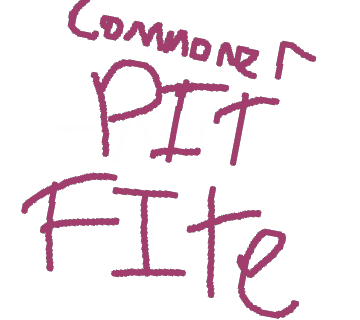 Commoner
PIT
FIte